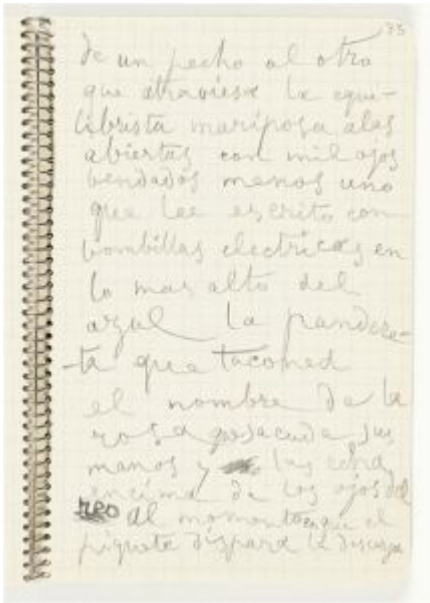 73
de un pecho al otro
que atraviese la equi-
librista mariposa alas
abiertas con mil ojos
vendados menos uno
que lee escrito con
bombillas electricas en
lo mas alto del
azul la pandere-
-ta que
el nombre de la
rosa sacude sus
manos y las echa
encima de los ojos del
reo al momento en que el
piquete dispara la descarga